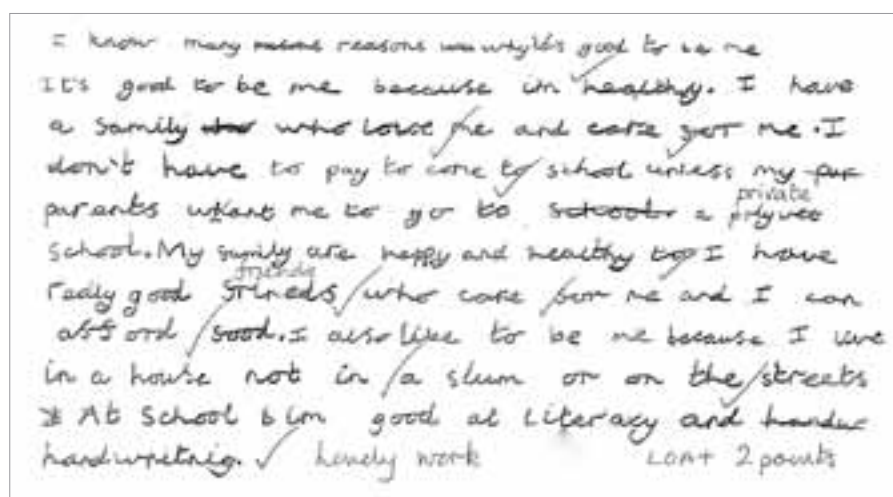 I know many reasons why it's good to be me
It's good to be me because im healthy. I have
a family who love me and care for me. I
don't have to pay to come to school unless my
parents want me to go to a private
school. My family are happy and healthy to I have
really good friends who care for me and I can
afford food. I also like to be me because I live
in a house not in a slum or on the streets
At School I'm good at Literacy and
handwriteing. Lovely work 2 points